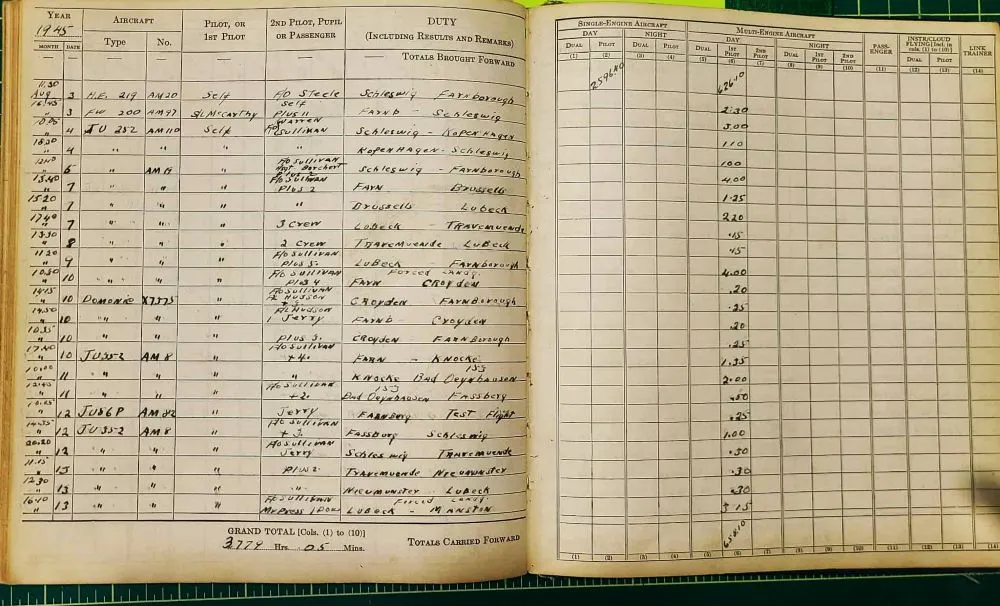 YEAR AIRCRAFT PILOT, OR 1ST PILOT 2ND PILOT, PUPIL OR PASSENGER DUTY (INCLUDING RESULTS AND REMARKS)
1945
MONTH DATE Type No.
— — — — — — TOTALS BROUGHT FORWARD
SINGLE-ENGINE AIRCRAFT MULTI-ENGINE AIRCRAFT PASS-ENGER INSTR/CLOUD FLYING [Incl. in cols. (1) to (10)] LINK TRAINER
DAY NIGHT DAY NIGHT
DUAL PILOT DUAL PILOT DUAL 1ST PILOT 2ND PILOT DUAL 1ST PILOT 2ND PILOT DUAL PILOT
(1) (2) (3) (4) (5) (6) (7) (8) (9) (10) (11) (12) (13) (14)
2596.40 626.10
11.30
Aug 3 H.E. 219 AM20 Self F/O Steele Schleswig Farnborough
16.45 Self
" 3 FW 200 AM97 S/L McCarthy Plus 11 Farnb Schleswig 2.30
Warren
" 4 JU 352 AM110 Self F/O Sullivan Schleswig - Kopenhagen 3.00
" 4 " " " " Kopenhagen - Schleswig 1.10
F/O Sullivan
" 6 " AM18 " Schleswig - Farnborough 1.00
13.40 F/O Sullivan
" 7 " " " Plus 2 Farn Brussells 4.00
15.20
" 7 " " " " Brussells Lubeck 1.25
17.40
" 7 " " " 3 Crew Lubeck - Travemuende 2.20
13.30
" 8 " " " 2 Crew Travemuende Lubeck .15
11.20 F/O Sullivan
" 9 " " " Plus 5. Lubeck - Farnborough .45
10.50 F/O Sullivan Forced Landg.
" 10 " " " Plus 4 Farn Croyden 4.00
14.15 F/O Sullivan
" 10 Domonie X7375 " Croyden Farnborough .20
14.50 AC Hudson
" 10 " " " 1 Jerry Farnb - Croyden .25
10.35
" 10 " " " Plus 3. Croyden - Farnborough .20
17.40 F/O Sullivan
" 10 JU352 AM8 " +4. Farn - Knocke .25
10.00 153
" 11 " " " " Knocke Bad Oeynhausen 1.35
12.45 F/O Sullivan 153
" 11 " " " +2. Bad Oeynhausen Fassberg 2.00
" 12 JU86P AM82 " Jerry Farnberg Test Flight .50
14.35 F/O Sullivan
" 12 JU352 AM8 " +3. Fassburg Schleswig .25
20.20 F/O Sullivan
" 12 " " " Jerry Schleswig Travemuende 1.00
11.15
" 13 " " " Plus 2 Travemuende Nieumunster .30
12.30
" 13 " " " Nieumunster Lubeck .30
16.10 F/O Sullivan Forced Landg.
" 13 " " " Mr Press 1 Pow Lubeck - Manston .30
3.15
GRAND TOTAL [Cols. (1) to (10)]
3779 Hrs. 05 Mins.
TOTALS CARRIED FORWARD 658.10
(1) (2) (3) (4) (5) (6) (7) (8) (9) (10) (11) (12) (13) (14)